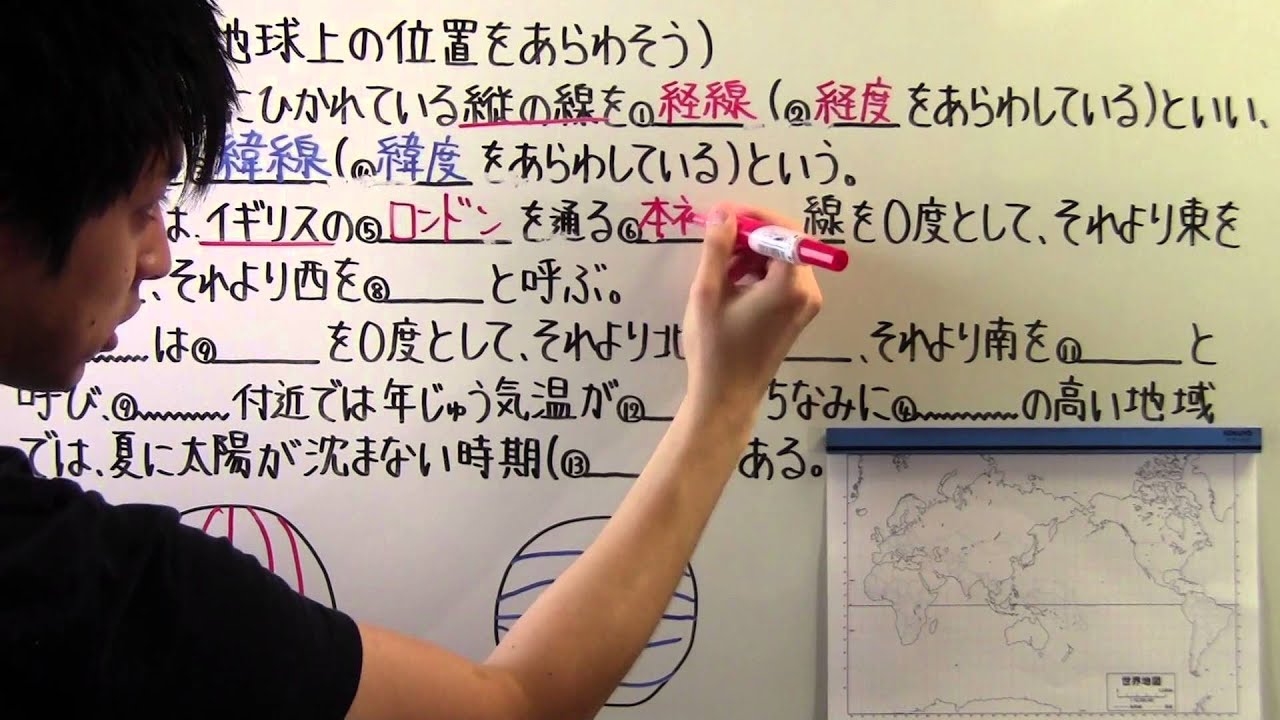 地球上の位置をあらわそう)
にひかれている縦の線を①経線(②経度をあらわしている)といい、
緯線(④緯度をあらわしている)という。
は、イギリスの⑤ロンドンを通る⑥本初 線を0度として、それより東を
、それより西を⑧ と呼ぶ。
は⑨ を0度として、それより北 、それより南を⑪ と
呼び、⑨ 付近では年じゅう気温が⑫ ちなみに④ の高い地域
では、夏に太陽が沈まない時期(⑬ ある。
KOKUYO
世界地図